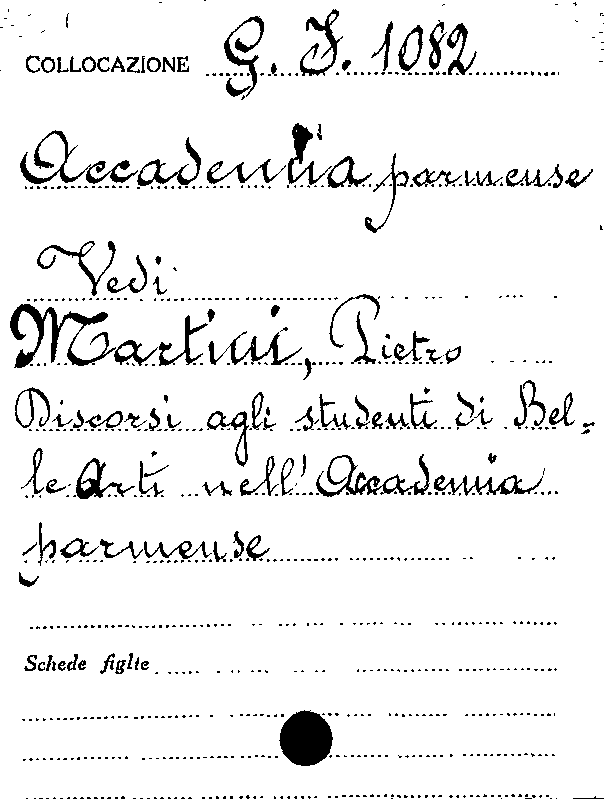 COLLOCAZIONE G. I. 1082
Accademia parmense
Vedi
Martini, Pietro
Discorsi agli studenti di Bel-
le Arti nell'Accademia
parmense
Schede figlte